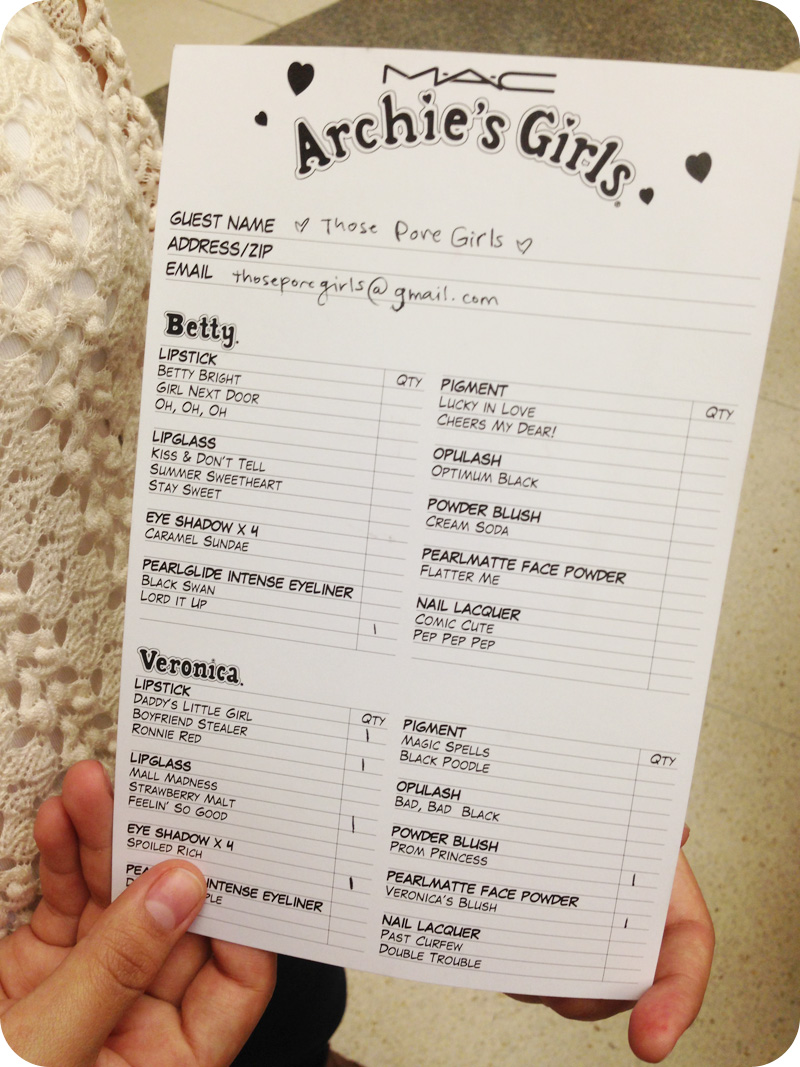 MAC
Archie's Girls
GUEST NAME ♡ Those Pore Girls ♡
ADDRESS/ZIP
EMAIL thoseporegirls@gmail.com
Betty
LIPSTICK QTY
BETTY BRIGHT
GIRL NEXT DOOR
OH, OH, OH
LIPGLASS
KISS & DON'T TELL
SUMMER SWEETHEART
STAY SWEET
EYE SHADOW X 4
CARAMEL SUNDAE
PEARLGLIDE INTENSE EYELINER
BLACK SWAN
LORD IT UP 1
PIGMENT QTY
LUCKY IN LOVE
CHEERS MY DEAR!
OPULASH
OPTIMUM BLACK
POWDER BLUSH
CREAM SODA
PEARLMATTE FACE POWDER
FLATTER ME
NAIL LACQUER
COMIC CUTE
PEP PEP PEP
Veronica
LIPSTICK QTY
DADDY'S LITTLE GIRL 1
BOYFRIEND STEALER
RONNIE RED 1
LIPGLASS
MALL MADNESS
STRAWBERRY MALT 1
FEELIN' SO GOOD
EYE SHADOW X 4
SPOILED RICH 1
INTENSE EYELINER
PIGMENT QTY
MAGIC SPELLS
BLACK POODLE
OPULASH
BAD, BAD BLACK
POWDER BLUSH
PROM PRINCESS 1
PEARLMATTE FACE POWDER
VERONICA'S BLUSH 1
NAIL LACQUER
PAST CURFEW
DOUBLE TROUBLE